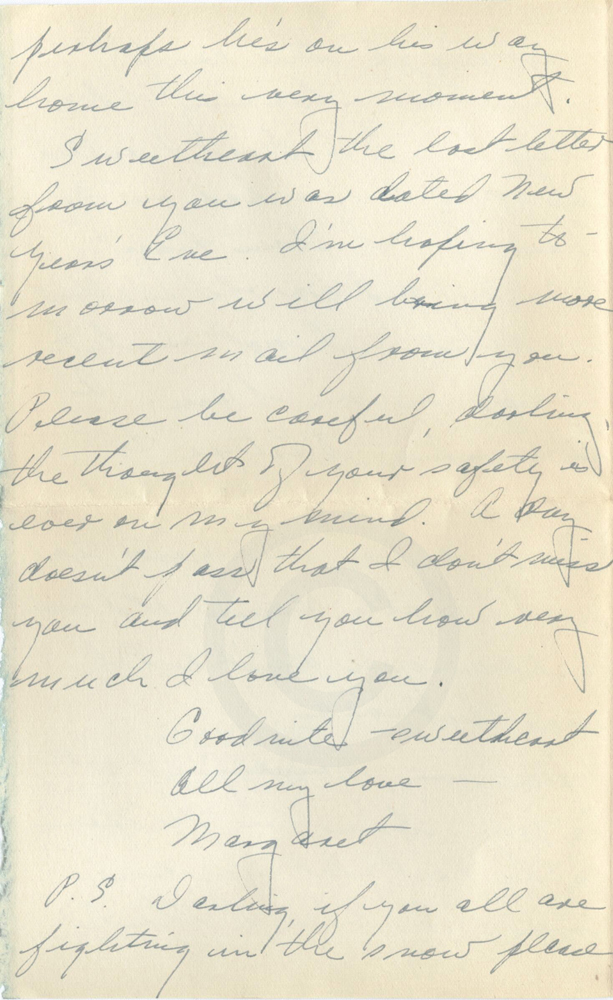 perhaps he's on his way
home this very moment.
Sweetheart the last letter
from you was dated New
Years' Eve. I'm hoping to-
morrow will bring more
recent mail from you.
Please be careful, darling,
the thought of your safety is
ever on my mind. A day
doesn't pass that I don't miss
you and tell you how very
much I love you.
Goodnite sweetheart
All my love —
Margaret
P.S. Darling, if you all are
fighting in the snow please